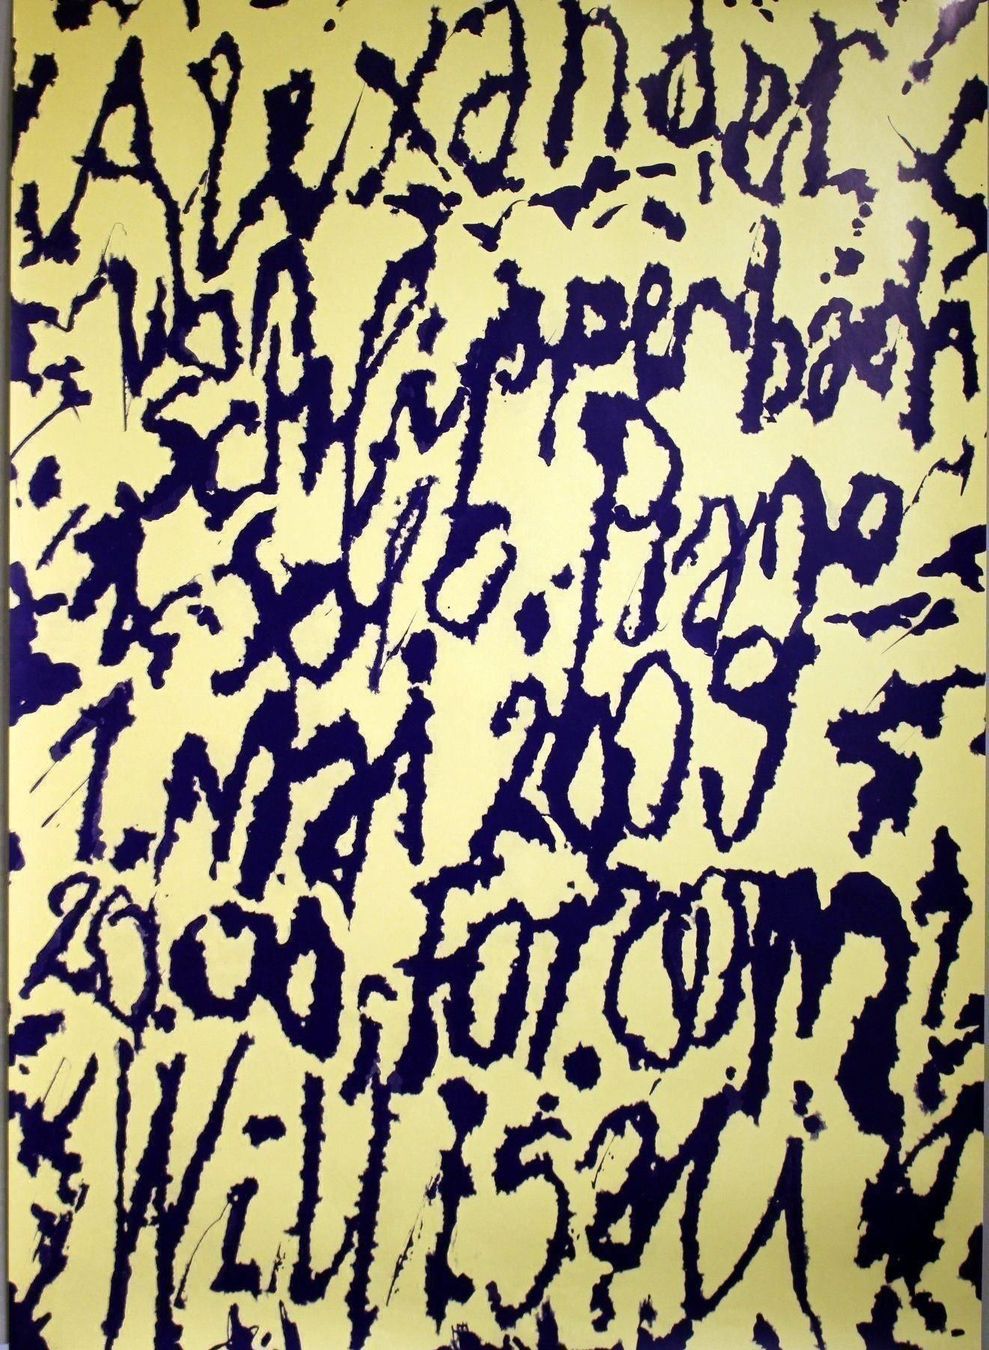 Alexander
von
Schlippenbach
Solo. Piano
1. Mai 2009
20.00. Foroom
Willisau